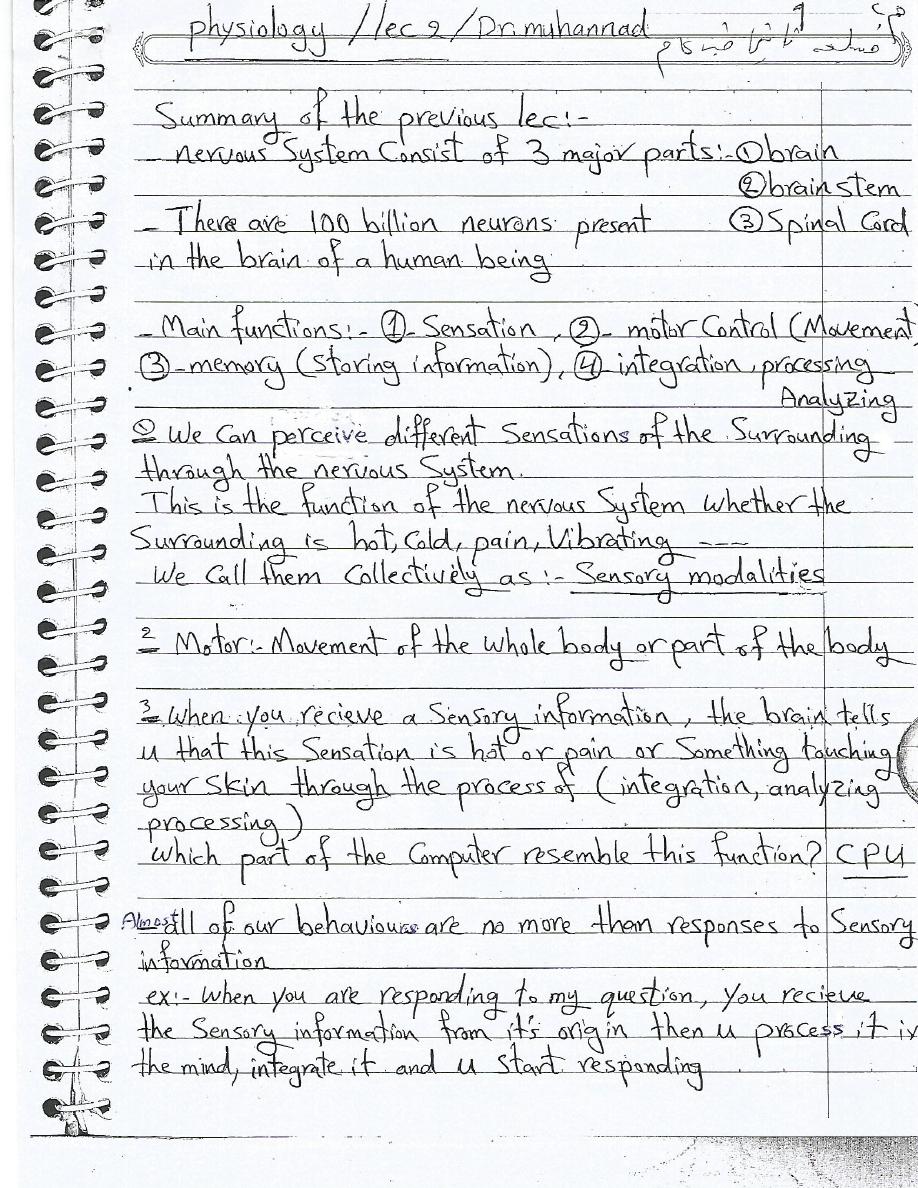 physiology / lec 2 / Dr. muhannad
Summary of the previous lec:-
- nervous System Consist of 3 major parts:- ① brain
② brain stem
- There are 100 billion neurons present ③ Spinal Cord
in the brain of a human being
- Main functions:- ①- Sensation, ②- motor Control (Movement
③- memory (storing information), ④ integration, processing
Analyzing
1 We Can perceive different Sensations of the Surrounding
through the nervous System.
This is the function of the nervous System whether the
Surrounding is hot, Cold, pain, Vibrating ----
We Call them Collectively as :- Sensory modalities
2 Motor:- Movement of the whole body or part of the body
3 When you recieve a Sensory information, the brain tells
u that this Sensation is hot or pain or Something touching
your skin through the process of (integration, analyzing
processing)
which part of the Computer resemble this function? CPU
Almost all of our behaviours are no more than responses to Sensory
information
ex:- When you are responding to my question, you recieve
the Sensory information from it's origin then u process it in
the mind, integrate it and u start responding